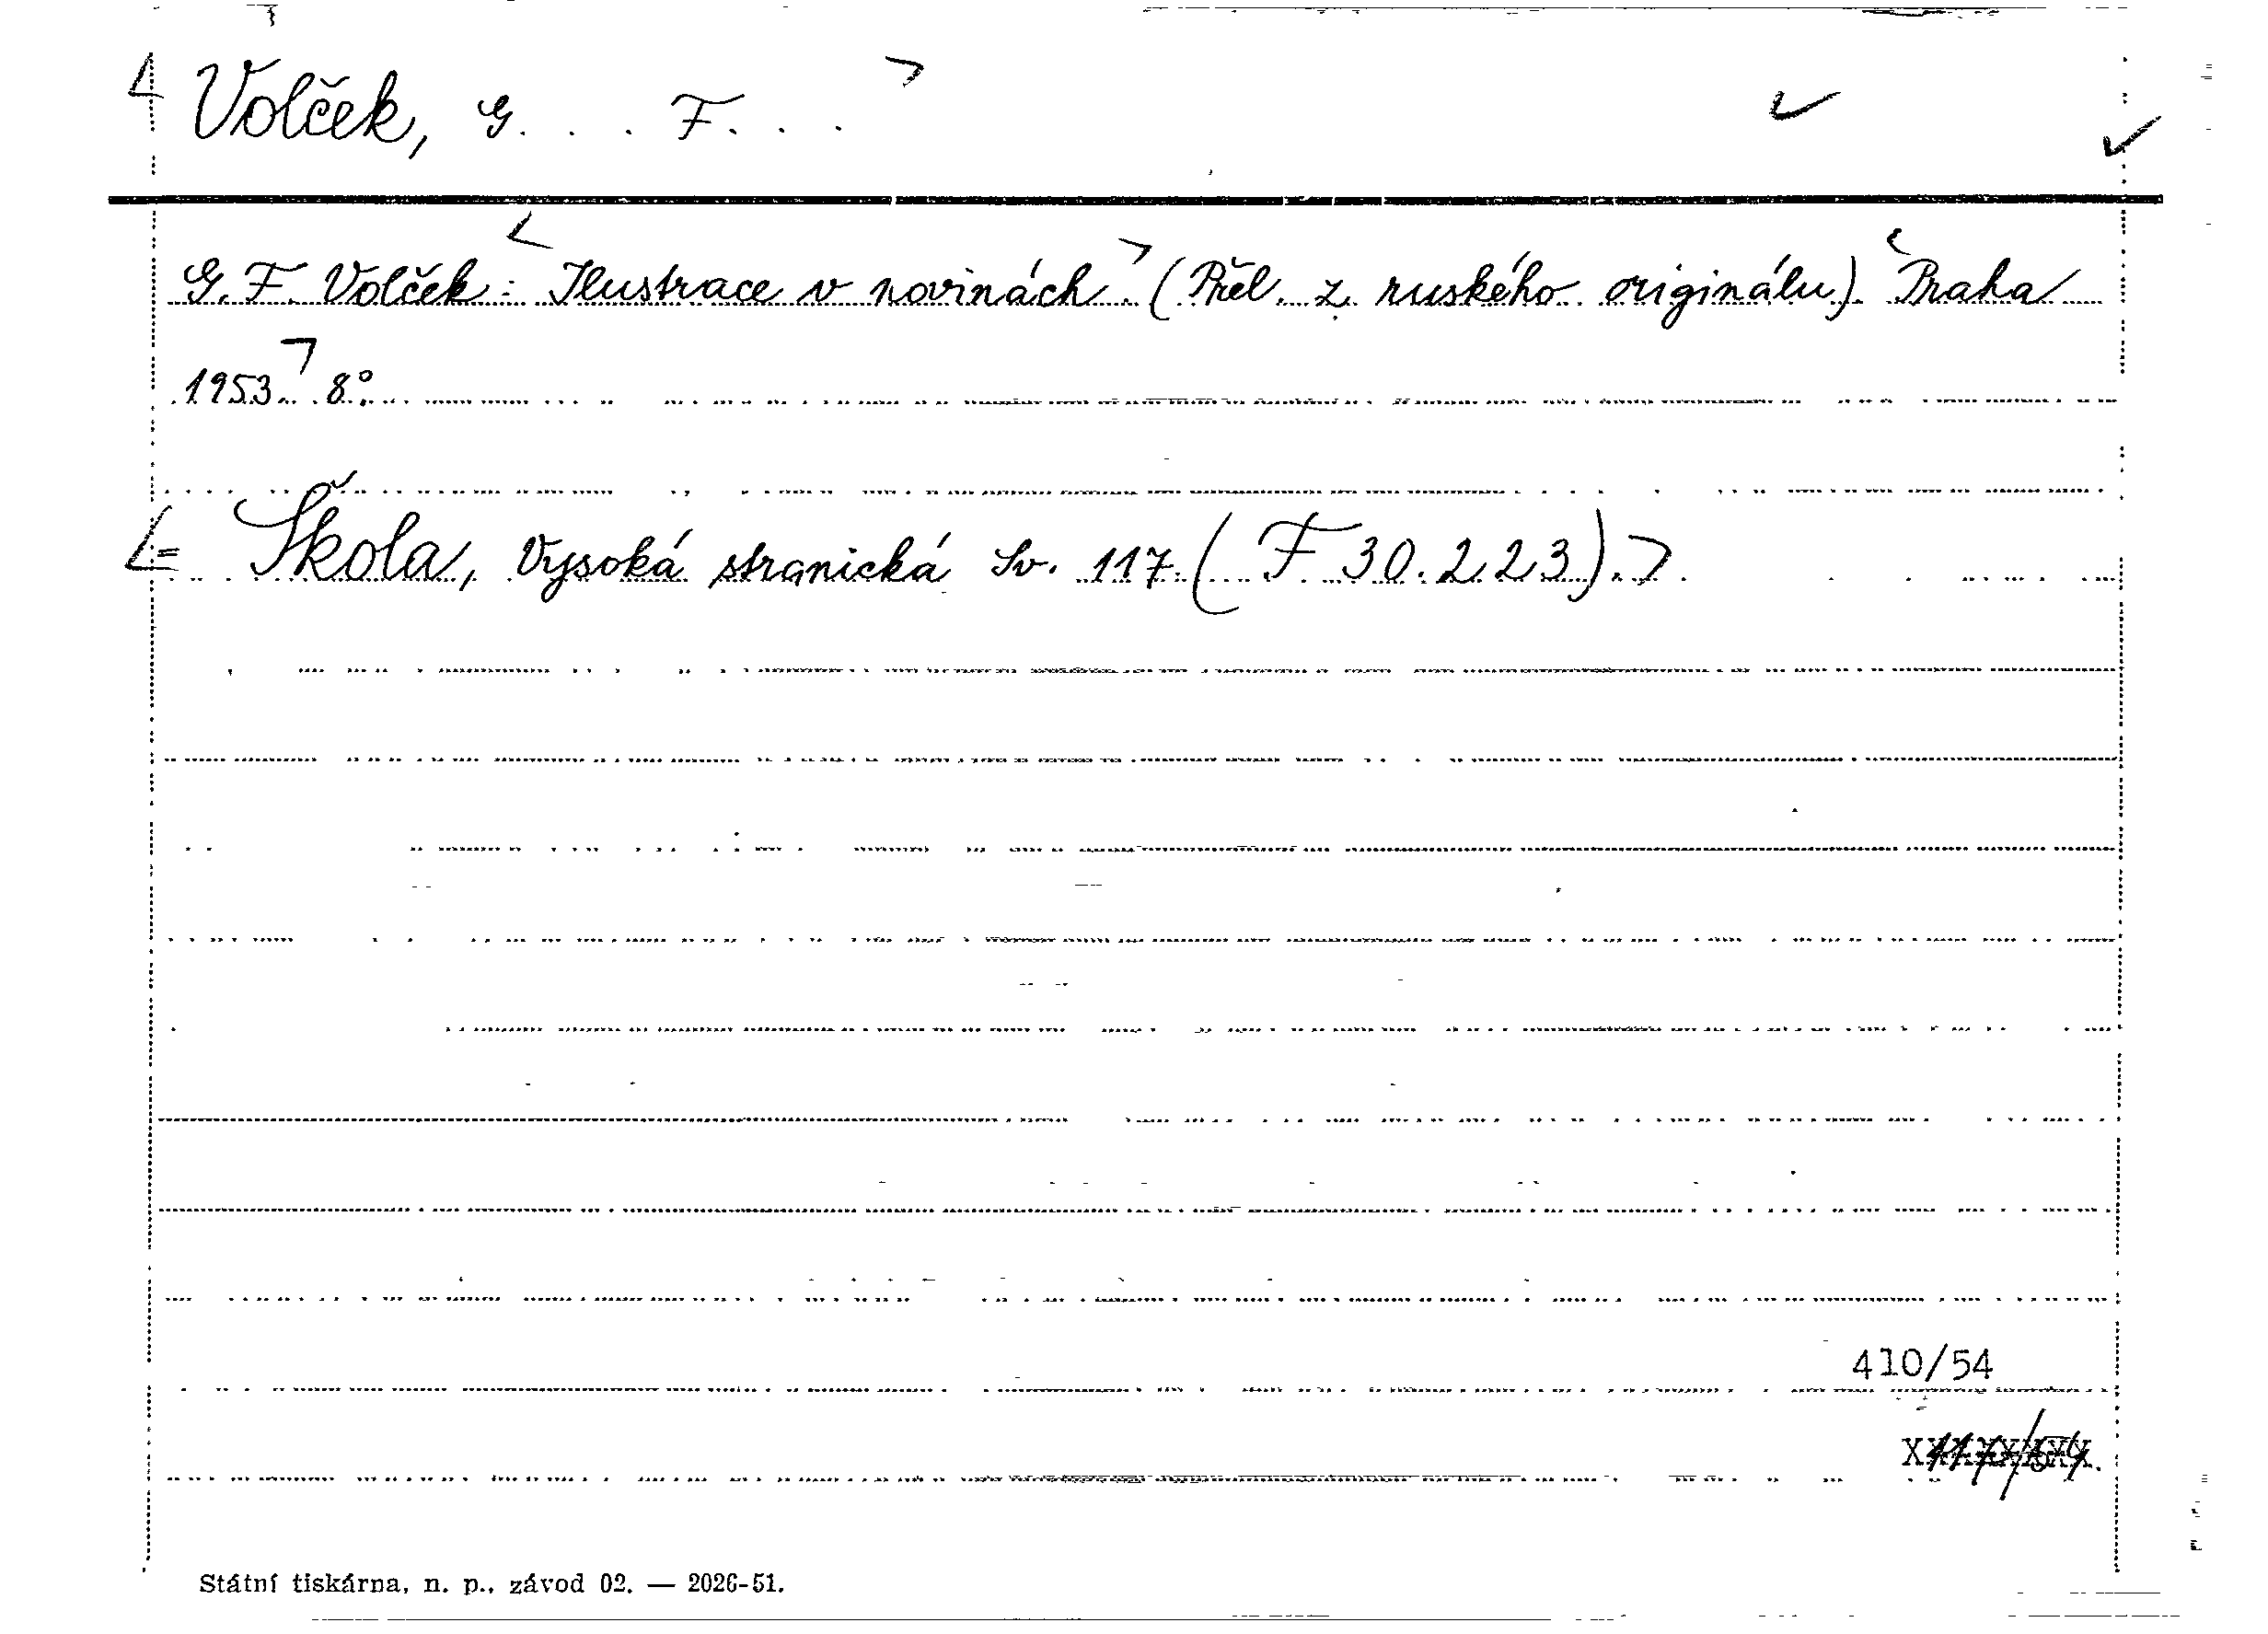 Volček, G. . . F. . .
G. F. Volček: Ilustrace v novinách. (Přel. z ruského originálu). Praha
1953. 8°.
= Škola, Vysoká stranická Sv. 117. (F 30.223).
410/54
Státní tiskárna, n. p., závod 02. — 2026-51.